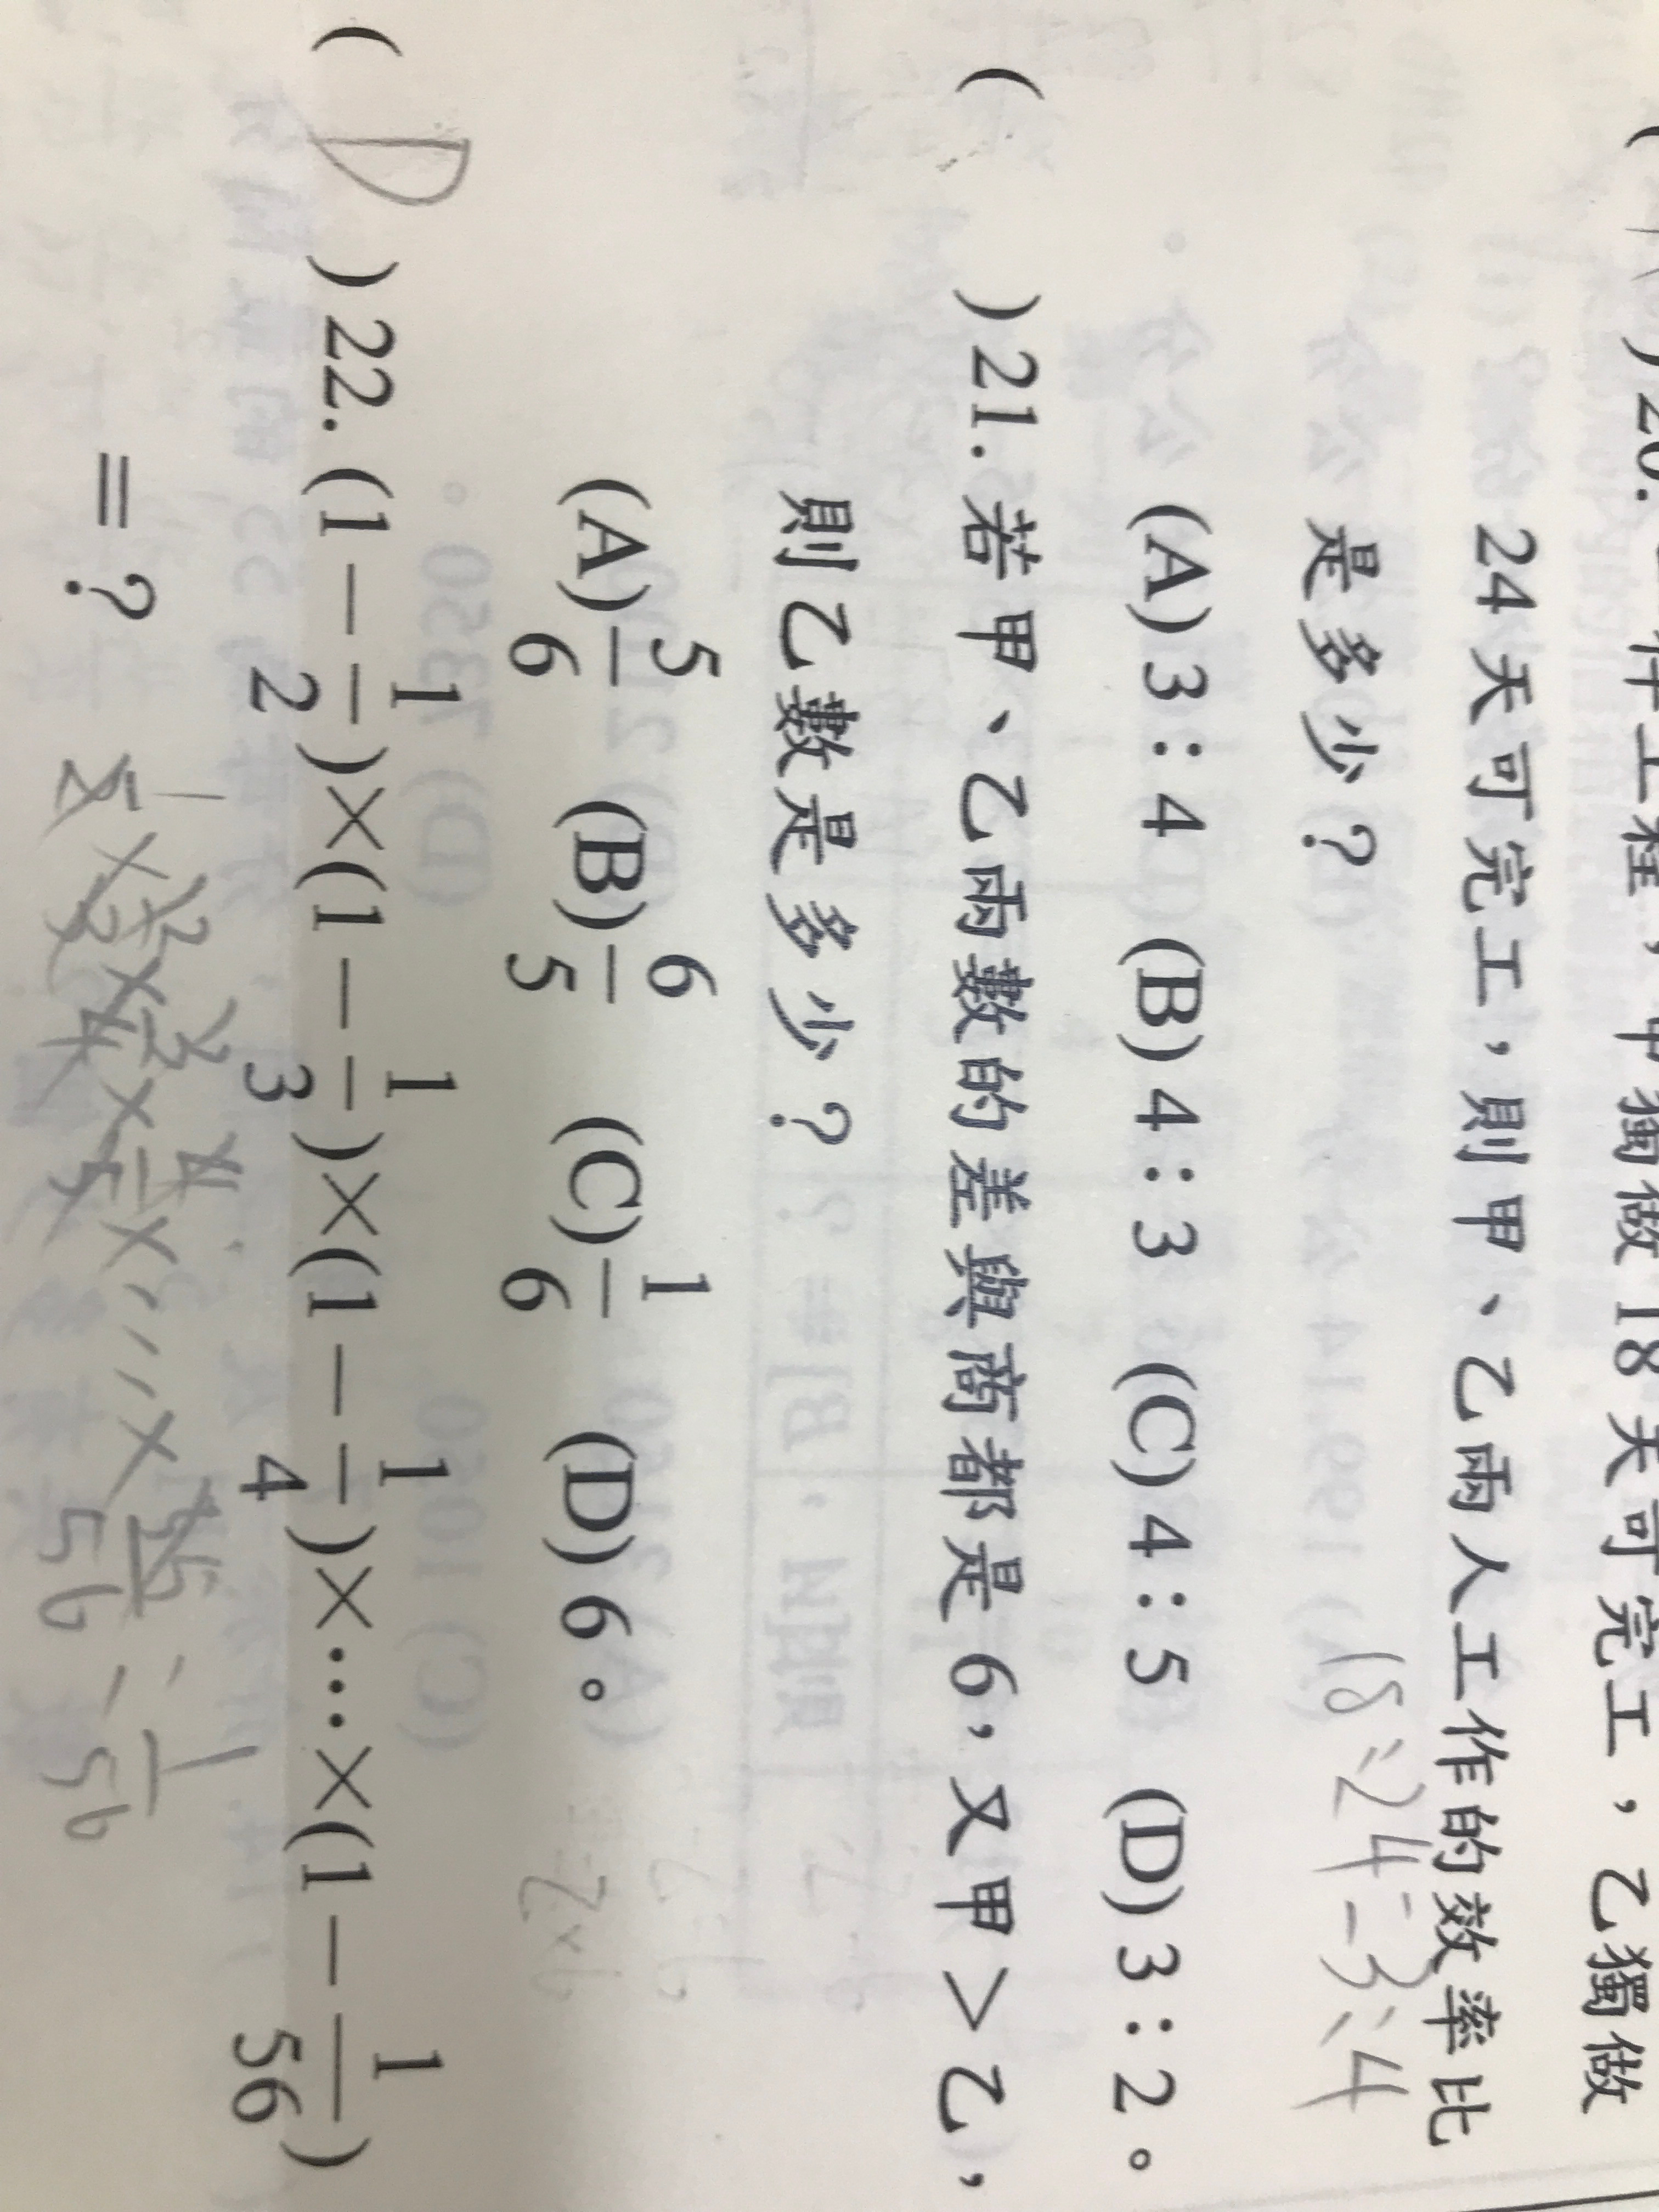 )20. 一件工程，甲獨做18天可完工，乙獨做
24天可完工，則甲、乙兩人工作的效率比
是多少？ 18:24=3:4
(A) 3：4 (B) 4：3 (C) 4：5 (D) 3：2。
( )21. 若甲、乙兩數的差與商都是6，又甲＞乙，
則乙數是多少？
(A) 5/6 (B) 6/5 (C) 1/6 (D) 6。
( D )22. (1－1/2)×(1－1/3)×(1－1/4)×…×(1－1/56)
＝？ 1/2×2/3×3/4×4/5×...×55/56=1/56